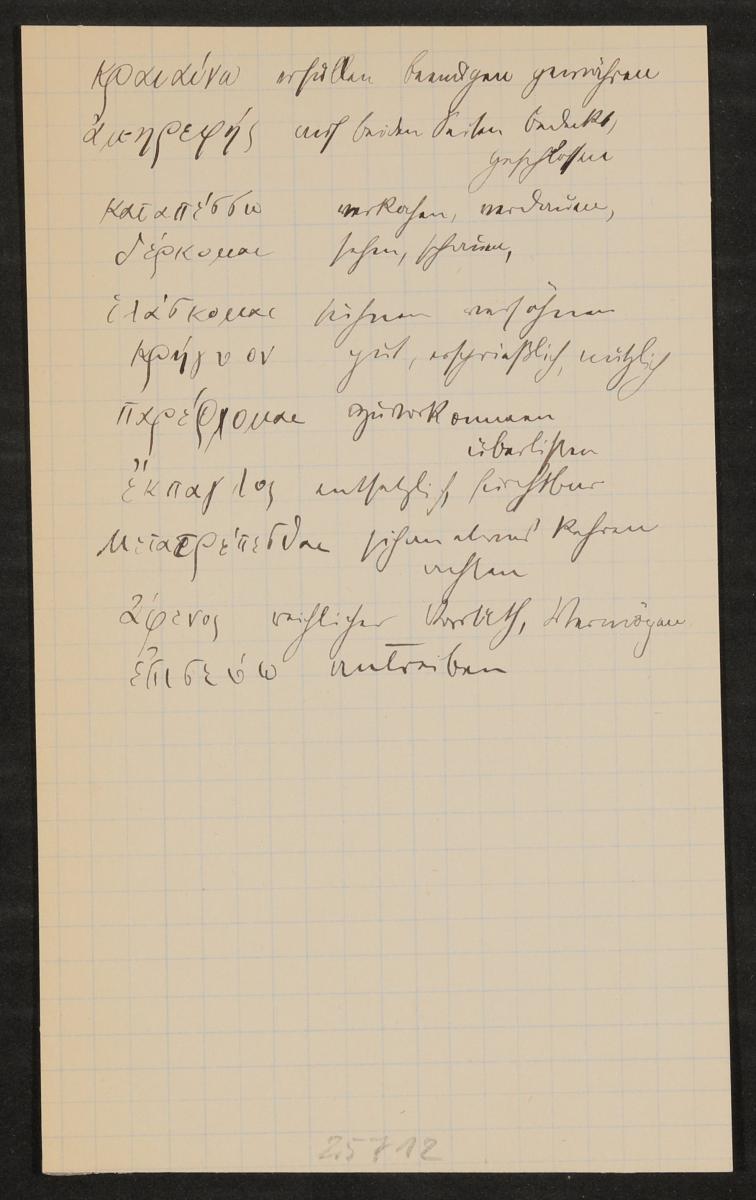 κραιαίνω erfüllen beendigen gewähren
ἀμηρεφής auf beiden Seiten bedeckt,
geschlossen
καταπέσσω verkochen, verdauen,
δέρκομαι sehen, schauen,
ἱλάσκομαι sühnen versöhnen
κρήγυον gut, ersprießlich, nützlich
παρέρχομαι zuvorkommen
überlisten
ἔκπαγλος entsetzlich furchtbar
μετατρέπεσθαι sich an etwas kehren
achten
ἄφενος reichlicher Vorrath, Vermögen
ἐπισεύω antreiben
25712